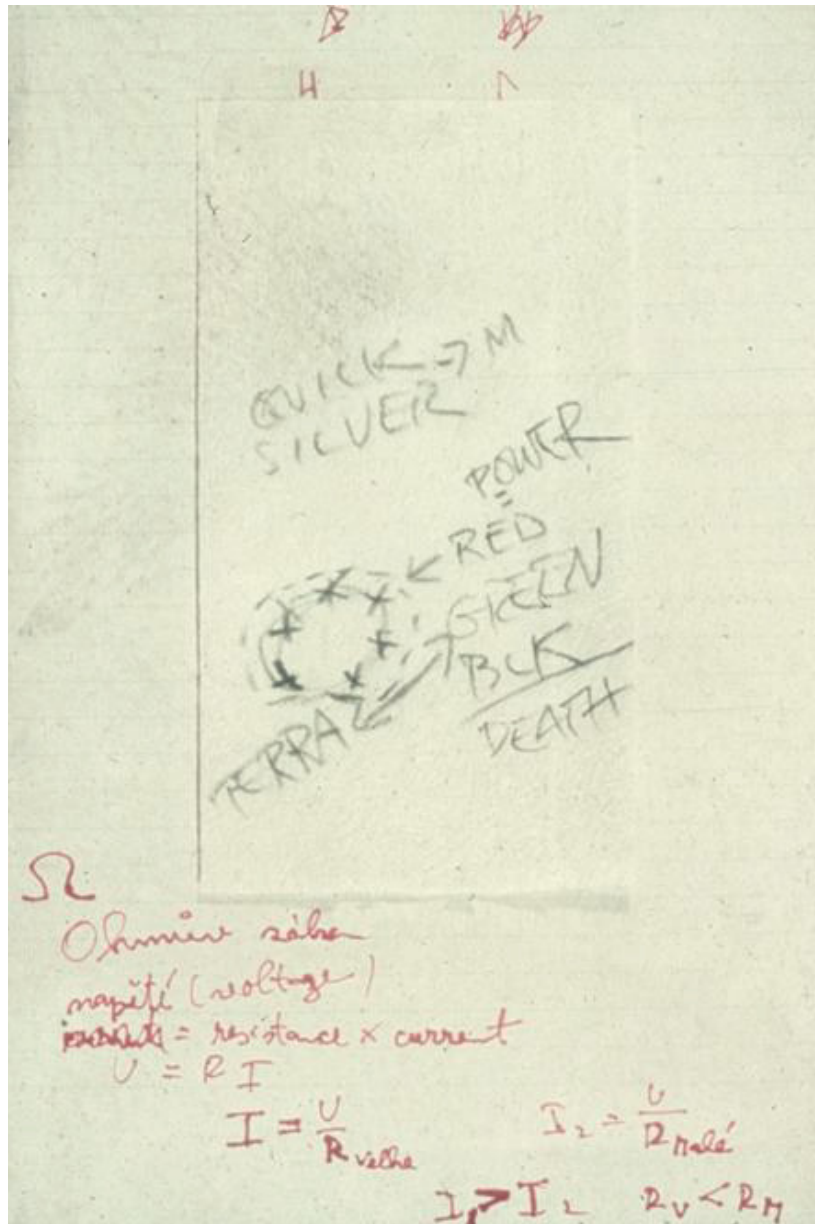 QUICK → M
SILVER
POWER
=
RED
GREEN
BLK
DEATH
TERRA
Ω
Ohmův zákon
napětí (voltage)
= resistance × current
U = R I
I = U / R velké
I₂ = U / R malé
I₁ > I₂ R_V < R_M